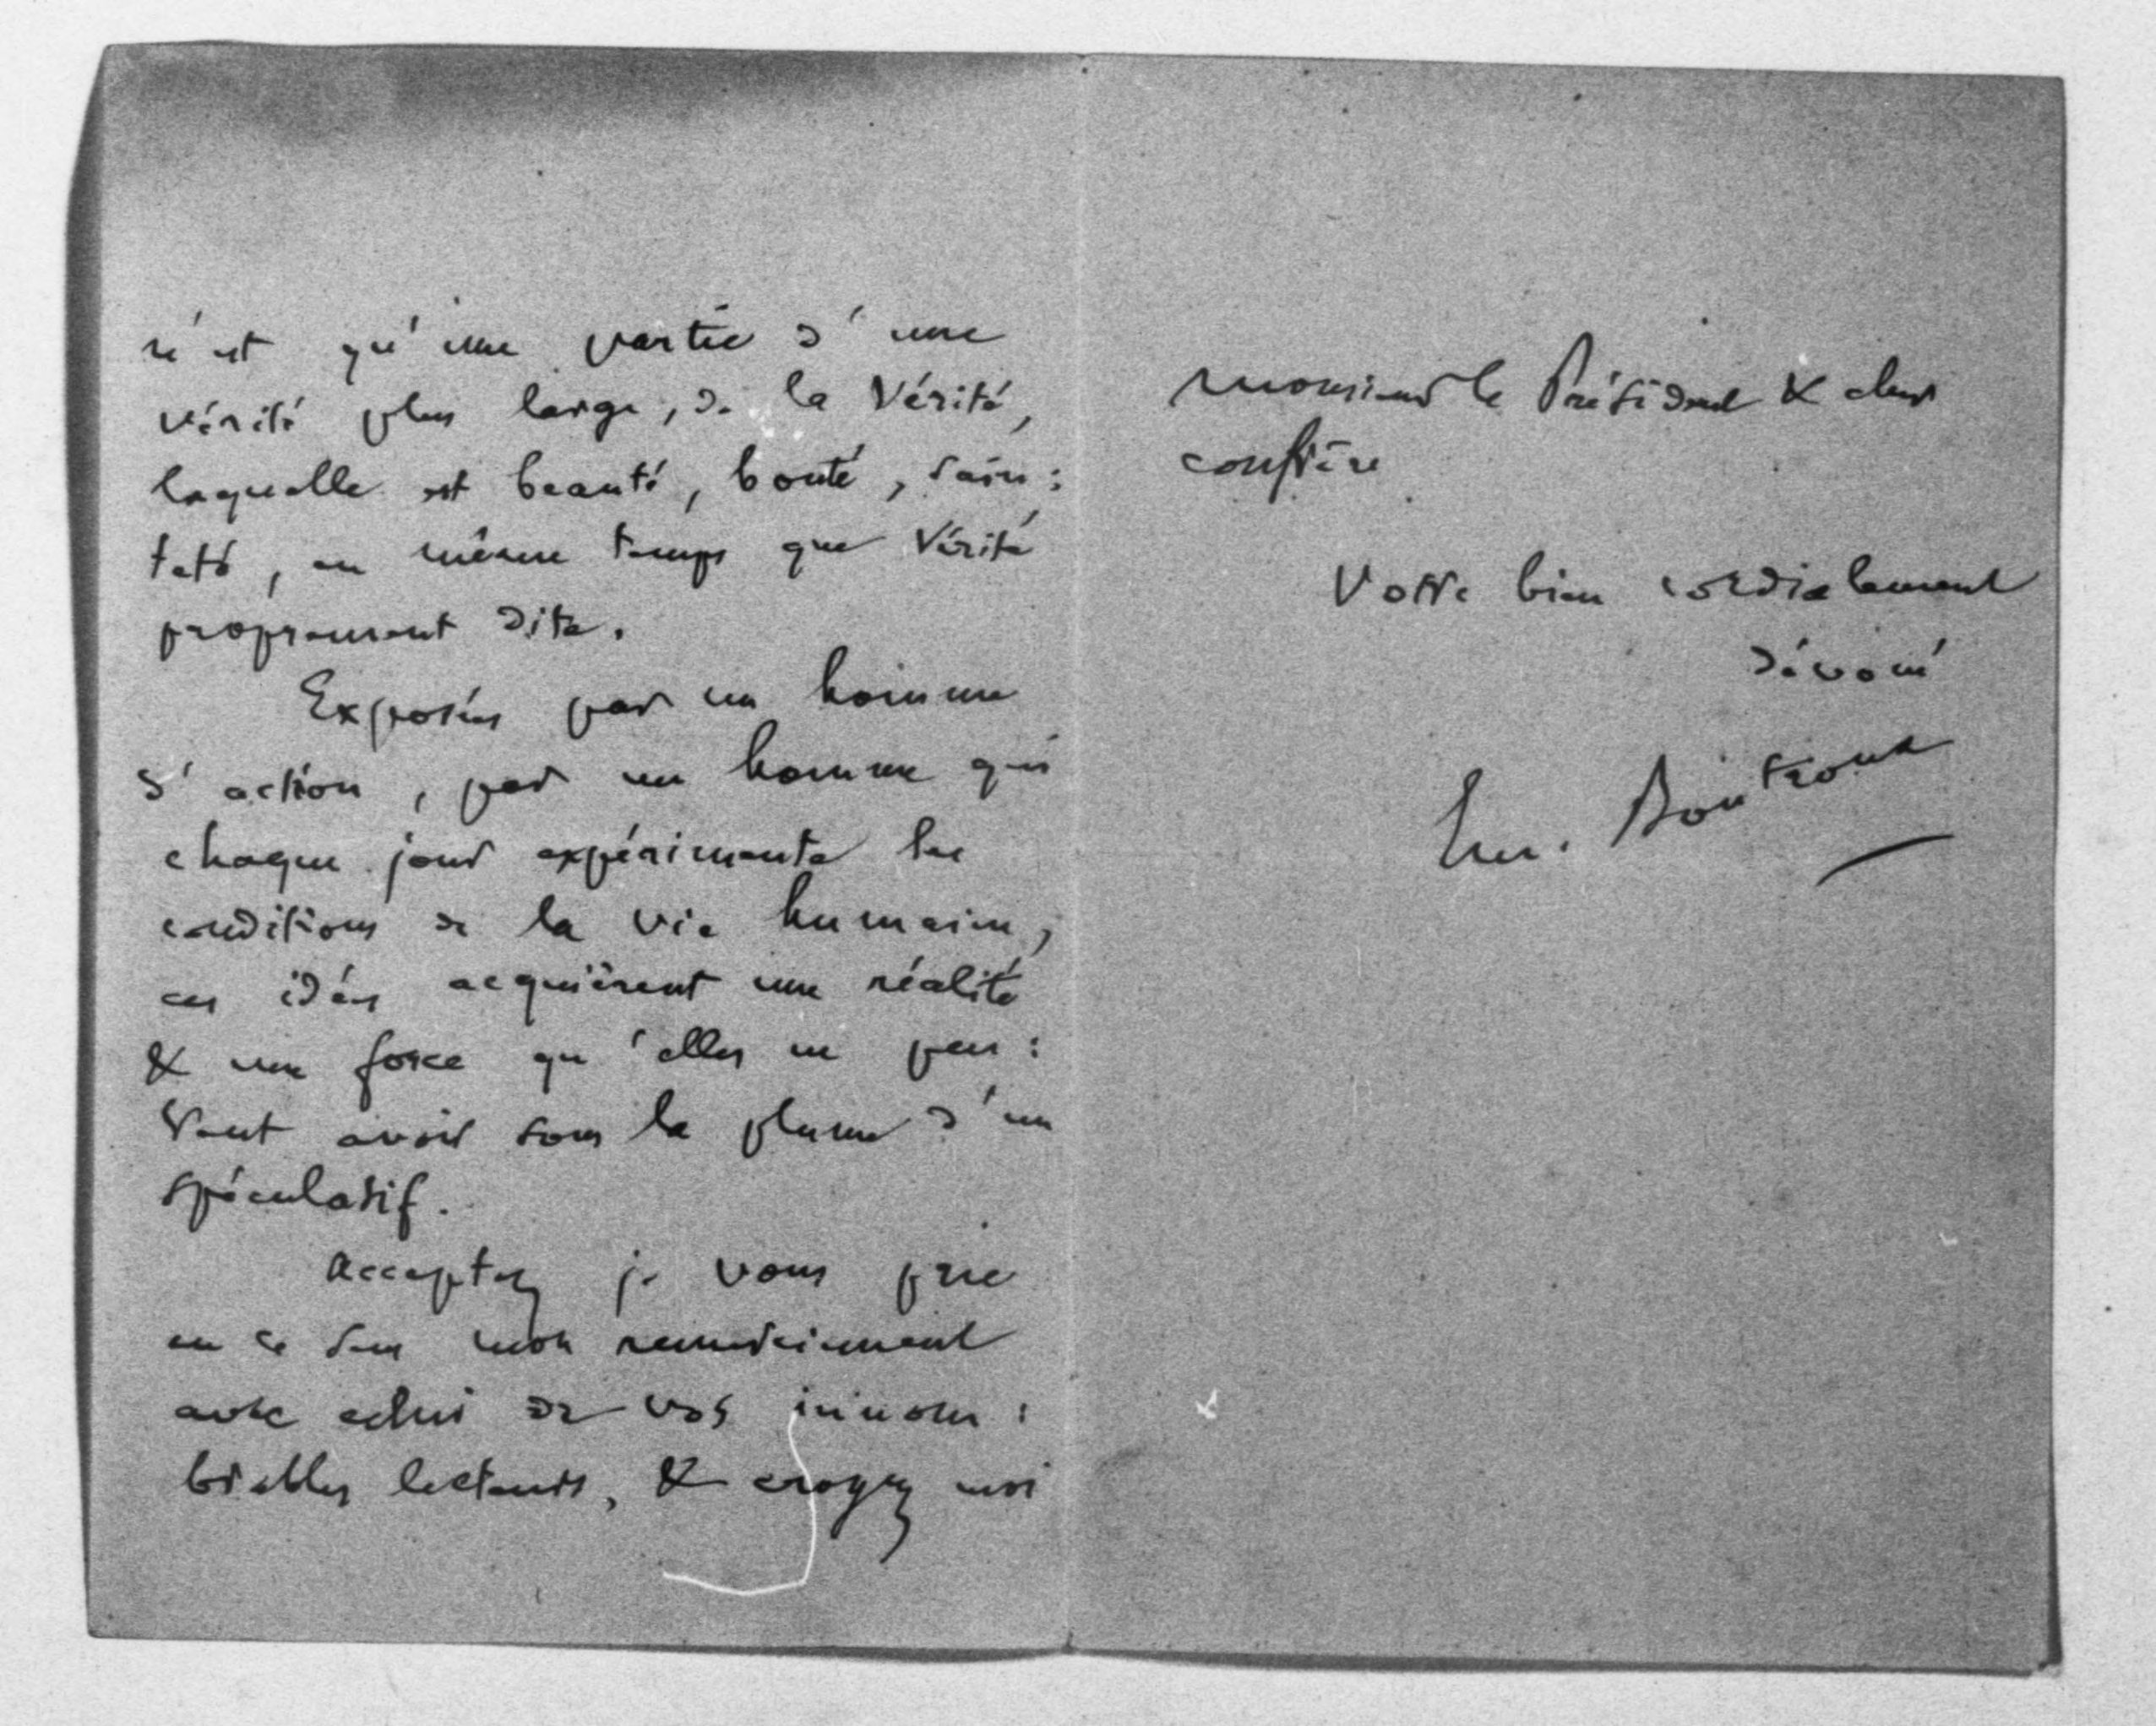 n'est qu'une partie d'une
vérité plus large, de la Vérité,
laquelle est beauté, bonté, sain:
teté, en même temps que Vérité
proprement dite.
Exposées par un homme
d'action, par un homme qui
chaque jour expérimente les
conditions de la vie humaine,
ces idées acquièrent une réalité
& une force qu'elles ne peu:
vent avoir sous la plume d'un
spéculatif.
Acceptez je vous prie
en ce sens mon remerciement
avec celui de vos innom:
brables lecteurs, & croyez moi
Monsieur le Président & cher
confrère
Votre bien cordialement
dévoué
Em. Boutroux